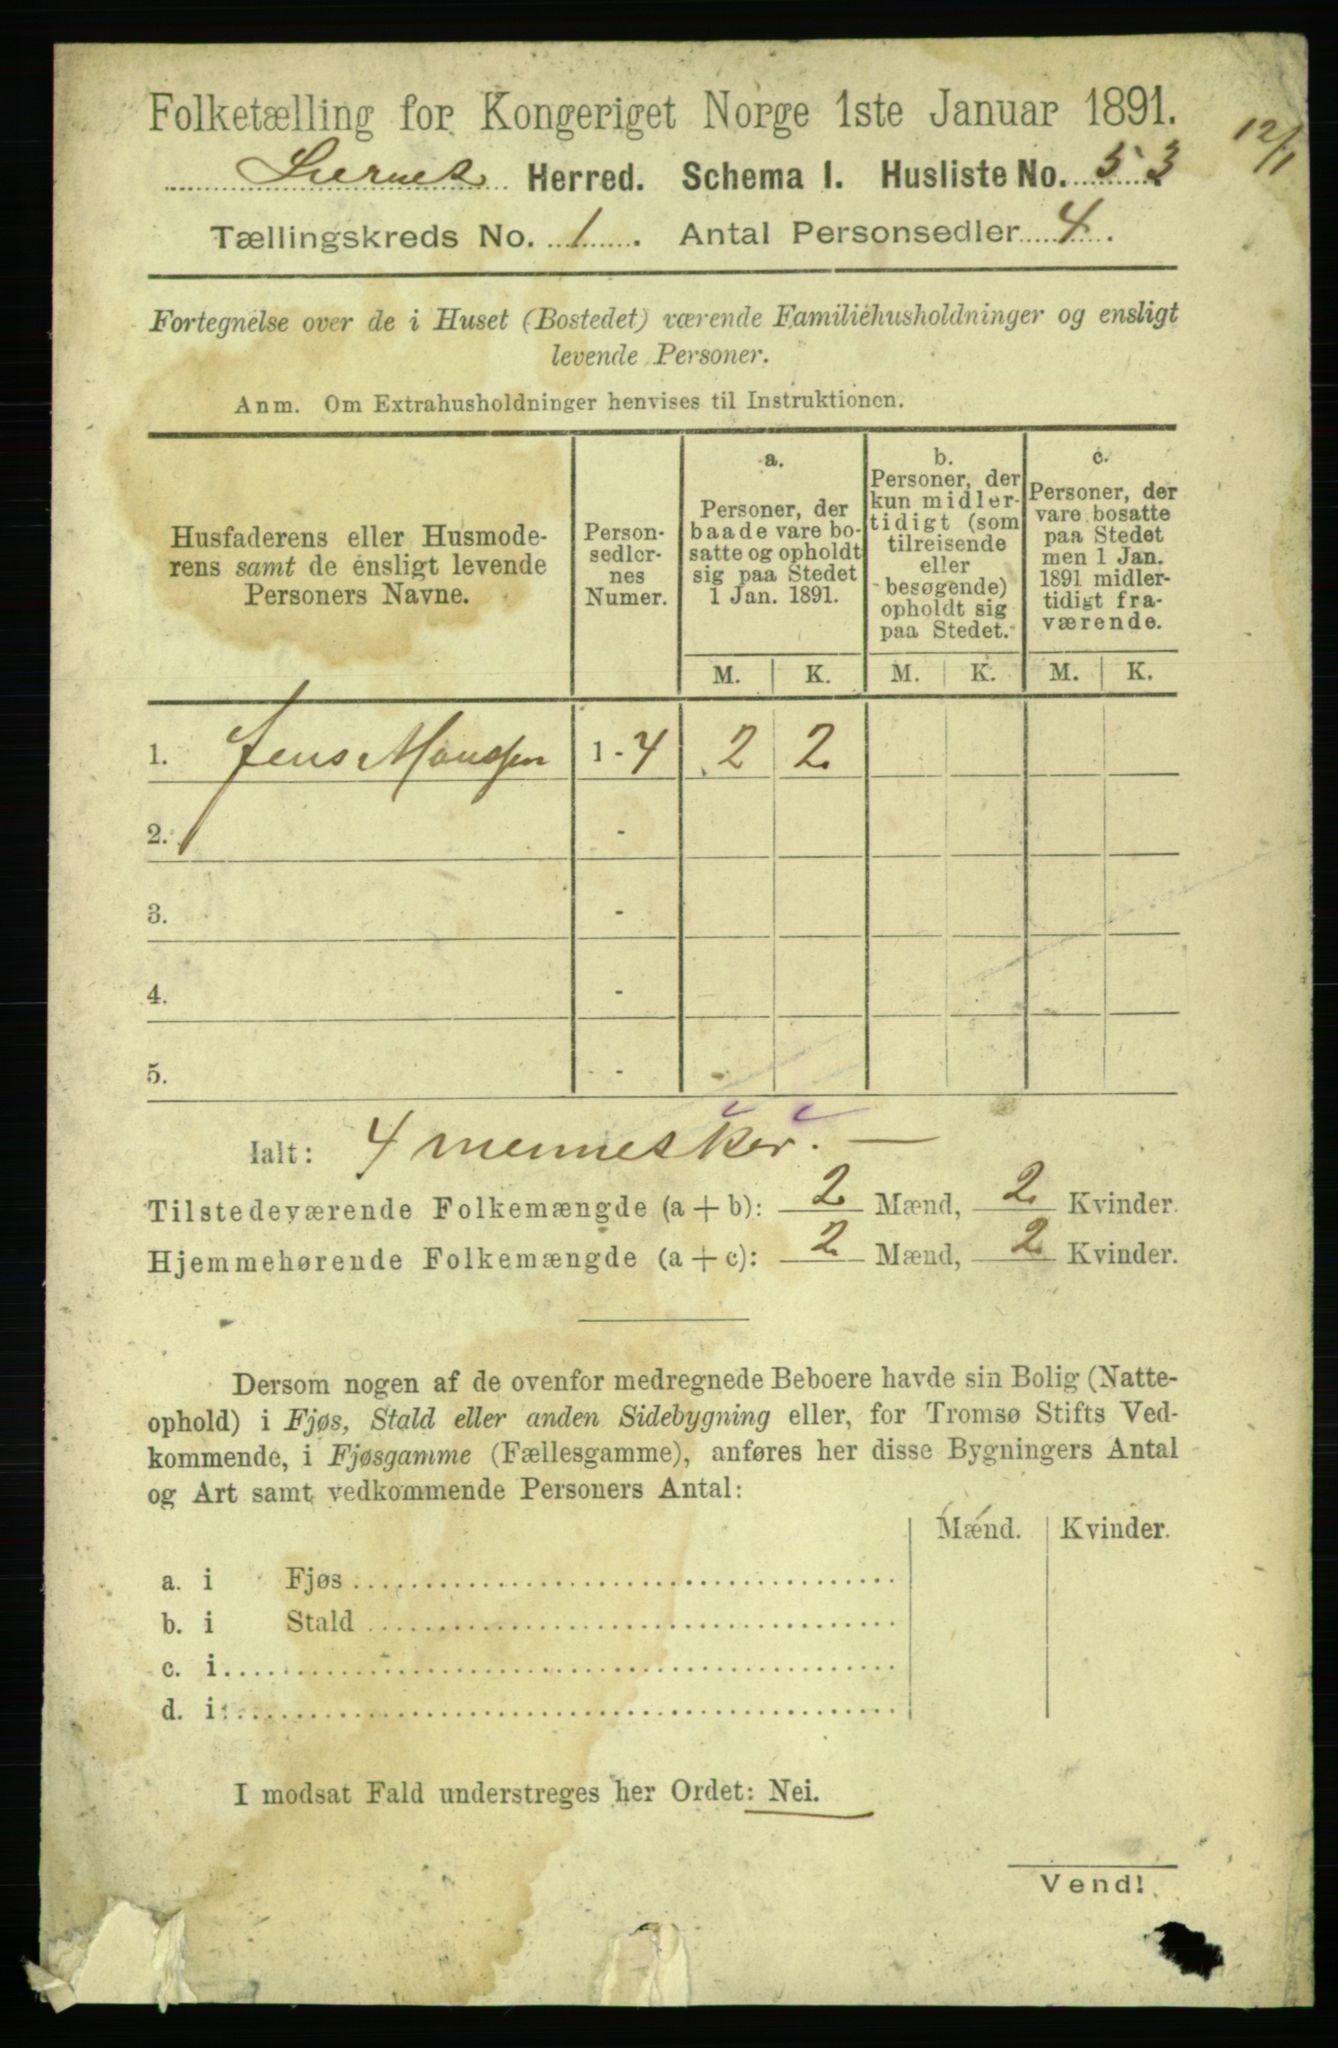 Folketælling for Kongeriget Norge 1ste Januar 1891.
12/1
Herred. Schema I. Husliste No. 53
Tællingskreds No. 1. Antal Personsedler 4.
Fortegnelse over de i Huset (Bostedet) værende Familiehusholdninger og ensligt
levende Personer.
Anm. Om Extrahusholdninger henvises til Instruktionen.
Husfaderens eller Husmode-
rens samt de ensligt levende
Personers Navne.
Person-
sedler-
nes
Numer.
a.
Personer, der
baade vare bo-
satte og opholdt
sig paa Stedet
1 Jan. 1891.
b.
Personer, der
kun midler-
tidigt (som
tilreisende
eller
besøgende)
opholdt sig
paa Stedet.
c.
Personer, der
vare bosatte
paa Stedet
men 1 Jan.
1891 midler-
tidigt fra-
værende.
M. K. M. K. M. K.
1. Jens 1-4 2 2
2. -
3. -
4. -
5. -
Ialt: 4 mennesker.
Tilstedeværende Folkemængde (a + b): 2 Mænd, 2 Kvinder.
Hjemmehørende Folkemængde (a + c): 2 Mænd, 2 Kvinder.
Dersom nogen af de ovenfor medregnede Beboere havde sin Bolig (Natte-
ophold) i Fjøs, Stald eller anden Sidebygning eller, for Tromsø Stifts Ved-
kommende, i Fjøsgamme (Fællesgamme), anføres her disse Bygningers Antal
og Art samt vedkommende Personers Antal:
Mænd. Kvinder.
a. i Fjøs
b. i Stald
c. i
d. i
I modsat Fald understreges her Ordet: Nei.
Vend!